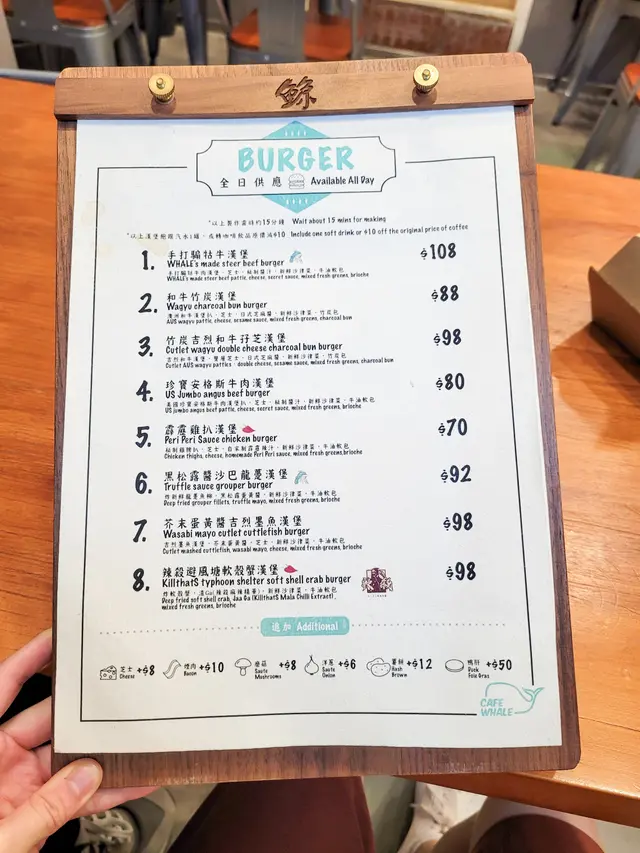 鯨
BURGER
全日供應 Available All Day
*以上製作需時約15分鐘 Wait about 15 mins for making
*以上漢堡輕跟汽水1罐，或轉咖啡飲品原價減$10 Include one soft drink or $10 off the original price of coffee
1. 手打騸牯牛漢堡 $108
WHALE's made steer beef burger
手打騸牯牛肉漢堡、芝士、秘制醬汁、新鮮沙律菜、牛油軟包
WHALE's made steer beef pattie, cheese, secret sauce, mixed fresh greens, brioche
2. 和牛竹炭漢堡 $88
Wagyu charcoal bun burger
澳洲和牛漢堡扒、芝士、日式芝麻醬、新鮮沙律菜、竹炭包
AUS wagyu pattie, cheese, sesame sauce, mixed fresh greens, charcoal bun
3. 竹炭吉烈和牛孖芝漢堡 $98
Cutlet wagyu double cheese charcoal bun burger
吉烈和牛漢堡、雙層芝士、日式芝麻醬、新鮮沙律菜、竹炭包
Cutlet AUS wagyu patties, double cheese, sesame sauce, mixed fresh greens, charcoal bun
4. 珍寶安格斯牛肉漢堡 $80
US Jumbo angus beef burger
美國珍寶安格斯牛肉漢堡扒、芝士、秘制醬汁、新鮮沙律菜、牛油軟包
US jumbo angus beef pattie, cheese, secret sauce, mixed fresh greens, brioche
5. 霹靂雞扒漢堡 $70
Peri Peri Sauce chicken burger
秘制雞髀扒、芝士、自家制霹靂辣汁、新鮮沙律菜、牛油軟包
Chicken thighs, cheese, homemade Peri Peri sauce, mixed fresh greens, brioche
6. 黑松露醬沙巴龍躉漢堡 $92
Truffle sauce grouper burger
炸新鮮龍躉魚柳、黑松露蛋黃醬、新鮮沙律菜、牛油軟包
Deep fried grouper fillets, truffle mayo, mixed fresh greens, brioche
7. 芥末蛋黃醬吉烈墨魚漢堡 $98
Wasabi mayo cutlet cuttlefish burger
吉烈墨魚漢堡、芥末蛋黃醬、芝士、新鮮沙律菜、牛油軟包
Cutlet mashed cuttlefish, wasabi mayo, cheese, mixed fresh greens, brioche
8. 辣殺避風塘軟殼蟹漢堡 $98
KillthatS typhoon shelter soft shell crab burger
炸軟殼蟹、渣Ga(辣殺麻辣精華)、新鮮沙律菜、牛油軟包
Deep fried soft shell crab, Jaa Ga (KillthatS Mala Chilli Extract),
mixed fresh greens, brioche
追加 Additional
芝士 Cheese +$8
煙肉 Bacon +$10
蘑菇 Saute Mushrooms +$8
洋蔥 Saute Onion +$6
薯餅 Hash Brown +$12
鴨肝 Duck Foie Gras +$50
CAFE
WHALE